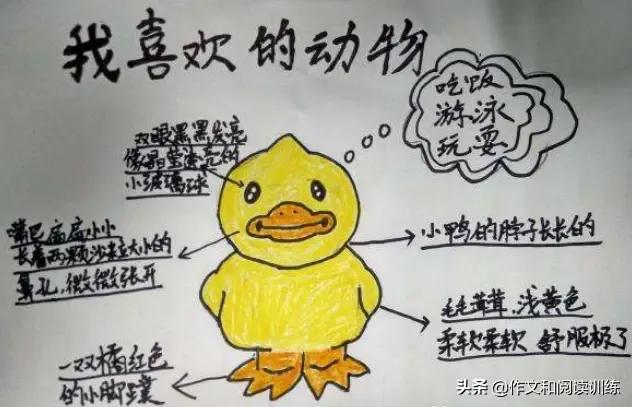 我喜欢的动物
吃饭
游泳
玩耍
双眼黑黑发亮
像晶莹透亮的
小玻璃球
嘴巴扁扁小小
长着两颗沙粒大小的
鼻孔,微微张开
小鸭的脖子长长的
毛毛茸茸,浅黄色
柔软柔软 舒服极了
一双橘红色
的小脚蹼
头条 @作文和阅读训练